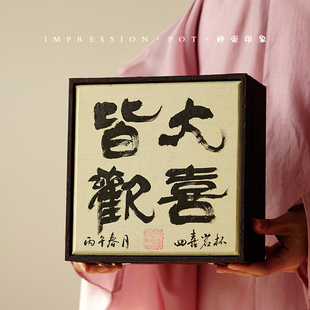 IMPRESSION · POT · 砂壺印象
大喜
皆歡
丙午春月
四喜岩杯